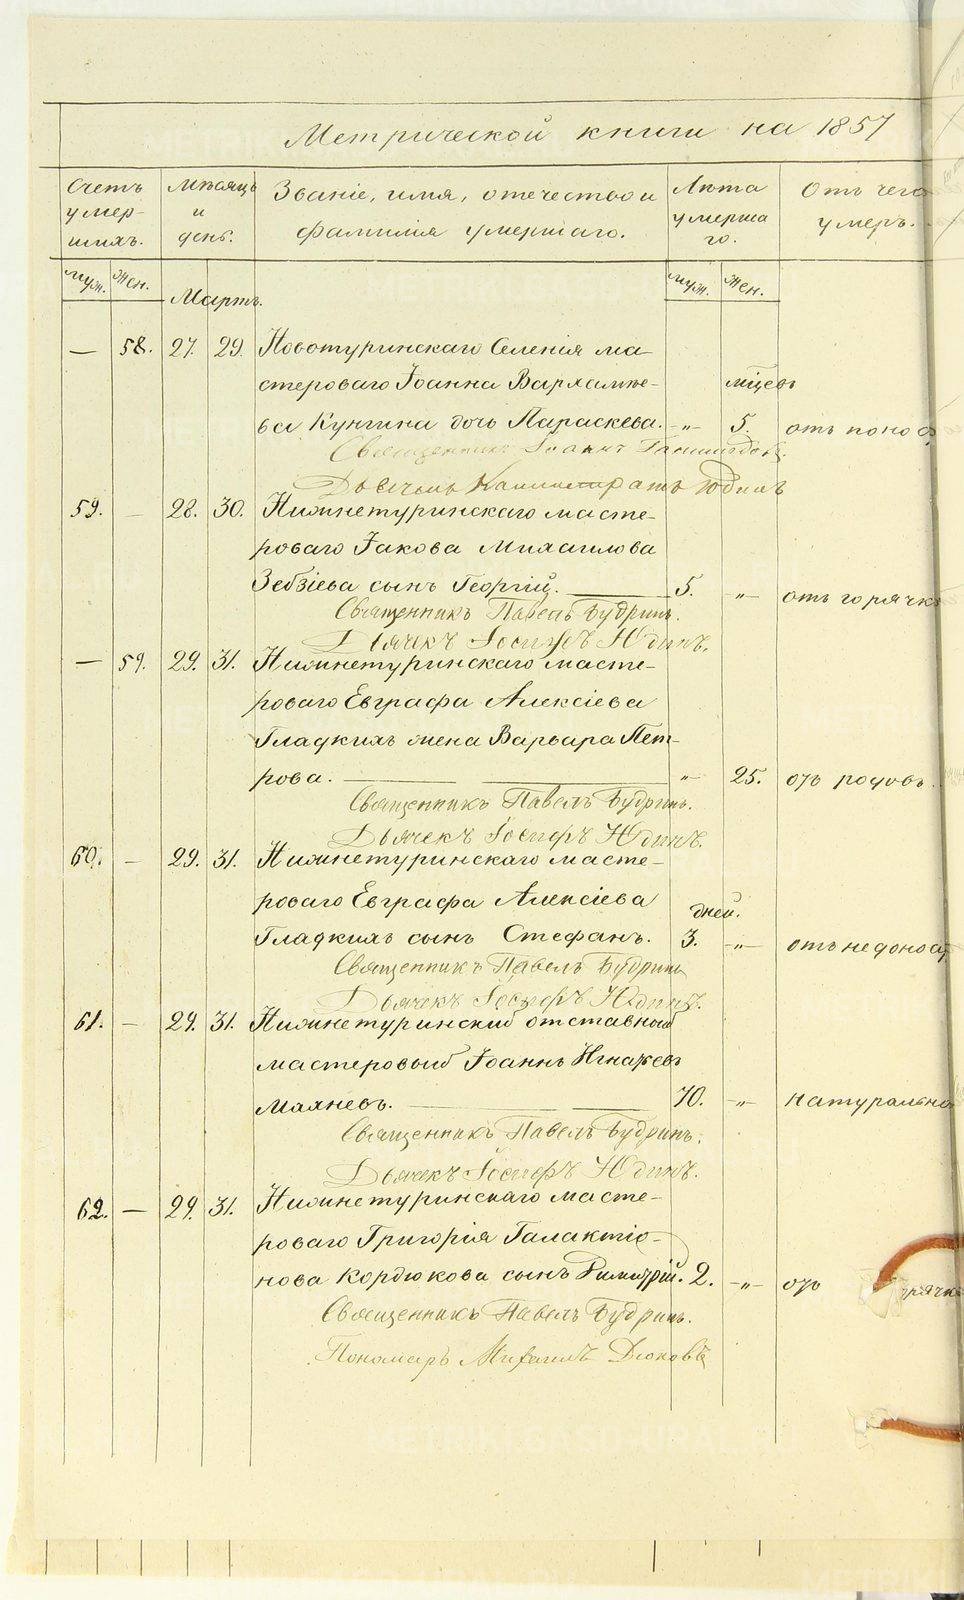 Метрической книги на 1857
Счетъ умер- шихъ.
Мѣсяцъ и день.
Званіе, имя, отечество и фамилія умершаго.
Лѣта умерша го.
Отъ чего умеръ.
Муж. Жен.
Мартъ.
Муж. Жен.
— 58. 27. 29. Новотуринскаго Селенія ма-
стероваго Іоанна Варлампе- мѣсцевъ
ва Кунгина дочь Параскева. -"- 5. отъ поноса
Священникъ Іоаннъ
Дьячекъ Юдинъ
59. — 28. 30. Нижнетуринскаго масте-
роваго Іакова Михаилова
Зебзіева сынъ Георгій. 5. -"- отъ горячк
Священникъ Павелъ Будринъ.
Дьячекъ Іосифъ Юдинъ.
— 59. 29. 31. Нижнетуринскаго масте-
роваго Евграфа Алексіева
Гладкихъ жена Варвара Пет-
рова. " 25. отъ родовъ.
Священникъ Павелъ Будринъ.
Дьячекъ Іосифъ Юдинъ.
60. — 29. 31. Нижнетуринскаго масте-
роваго Евграфа Алексіева дней.
Гладкихъ сынъ Стефанъ. 3. -"- отъ недонос
Священникъ Павелъ Будринъ
Дьячекъ Іосифъ Юдинъ.
61. — 29. 31. Нижнетуринскій отставный
мастеровый Іоаннъ Игнатьев
Маяневъ. 70. -"- натурально
Священникъ Павелъ Будринъ.
Дьячекъ Іосифъ Юдинъ.
62. — 29. 31. Нижнетуринскаго масте-
роваго Григорія Галактіо-
нова Кордюкова сынъ Димитрій. 2. -"- отъ горячк
Священникъ Павелъ Будринъ.
Пономарь Михаилъ Дюковъ
METRIKI.GASO-URAL.RU